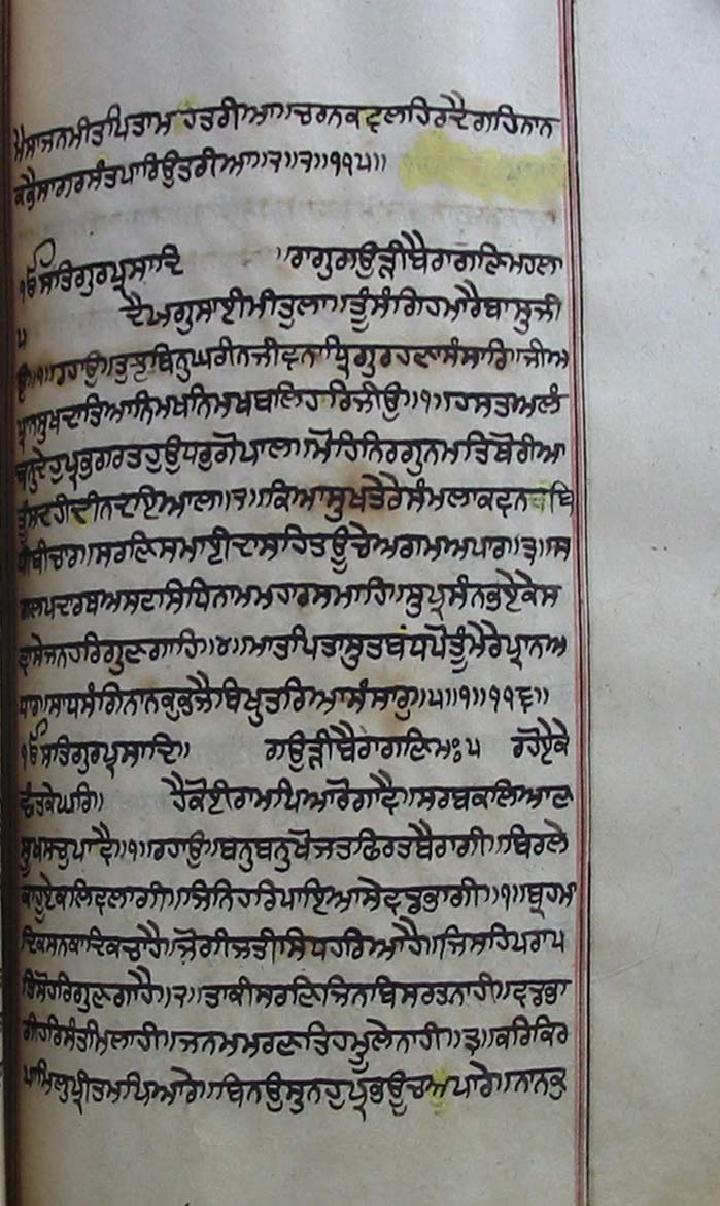 ਮੈਸਾਜਨਮੀਤਪਿਤਾਮਹਤਰੀਆ॥ਚਰਨਕਵਲਹਿਰਦੈਗਹਿਨਾਨ
ਕਭੈਸਾਗਰਸੰਤਪਾਰਿਉਤਰੀਆ॥੨॥੨॥੧੧੫॥
ੴਸਤਿਗੁਰਪ੍ਰਸਾਦਿ ॥ਰਾਗੁਗਉੜੀਬੈਰਾਗਣਿਮਹਲਾ
੫ ਦੈਘਗੁਸਾਈਮੀਤੁਲਾ॥ਤੂੰਸੰਗਿਹਮਾਰੈਬਾਸੁਜੀ
ਉ॥੧॥ਰਹਾਉ॥ਤੁਝਬਿਨੁਘਰੀਨਜੀਵਨਾਧ੍ਰਿਗੁਰਹਣਾਸੰਸਾਰਿ॥ਜੀਅ
ਪ੍ਰਾਨਸੁਖਦਾਤਿਆਨਿਮਖਨਿਮਖਬਲਿਹਾਰਿਜੀਉ॥੧॥ਹਸਤਅਲੰ
ਬਨੁਦੇਹੁਪ੍ਰਭਗਰਤਹੁਉਧਰੁਗੋਪਾਲਾ॥ਮੋਹਿਨਿਰਗੁਨਮਤਿਥੋਰੀਆ
ਤੂੰਸਦਹੀਦੀਨਦਇਆਲਾ॥੨॥ਕਿਆਸੁਖਤੇਰੇਸੰਮਲਾਕਵਨਬਿਧਿ
ਬੀਚਾਰ॥ਸਰਣਿਸਮਾਈਦਾਸਹਿਤਊਚੇਅਗਮਅਪਾਰ॥੩॥ਸ
ਗਲਪਦਾਰਥਅਸਟਸਿਧਿਨਾਮਮਹਾਰਸਮਾਹਿ॥ਸੁਪ੍ਰਸੰਨਭਏਕੇਸ
ਵਾਸੇਜਨਹਰਿਗੁਣਗਾਹਿ॥੪॥ਮਾਤਪਿਤਾਸੁਤਬੰਧਪੋਤੂੰਮੇਰੇਪ੍ਰਾਨਅ
ਧਾਰ॥ਸਾਧਸੰਗਿਨਾਨਕੁਭਜੈਬਿਖੁਤਰਿਆਸੰਸਾਰੁ॥੫॥੧॥੧੧੬॥
ੴਸਤਿਗੁਰਪ੍ਰਸਾਦਿ॥ ਗਉੜੀਬੈਰਾਗਣਿਮਃ੫ ਰਹੋਏਕੇ
ਛੰਤਕੇਘਰਿ॥ ਹੈਕੋਈਰਾਮਪਿਆਰੋਗਾਵੈ॥ਸਰਬਕਲਿਆਣ
ਸੂਖਸਚੁਪਾਵੈ॥੧॥ਰਹਾਉ॥ਬਨੁਬਨੁਖੋਜਤਫਿਰਤਬੈਰਾਗੀ॥ਬਿਰਲੇ
ਕਾਹੂਏਕਲਿਵਲਾਗੀ॥ਜਿਨਿਹਰਿਪਾਇਆਸੇਵਡਭਾਗੀ॥੧॥ਬ੍ਰਹਮਾ
ਦਿਕਸਨਕਾਦਿਕਚਾਹੈ॥ਜੋਗੀਜਤੀਸਿਧਹਰਿਆਹੈ॥ਜਿਸਹਿਪਰਾਪ
ਤਿਸੋਹਰਿਗੁਣਗਾਹੈ॥੨॥ਤਾਕੀਸਰਣਿਜਿਨਬਿਸਰਤਨਾਹੀ॥ਵਡਭਾ
ਗੀਹਰਿਸੰਤਮਿਲਾਹੀ॥ਜਨਮਮਰਣਤਿਹਮੂਲੇਨਾਹੀ॥੩॥ਕਰਿਕਿਰ
ਪਾਮਿਲੁਪ੍ਰੀਤਮਪਿਆਰੇ॥ਬਿਨਉਸੁਨਹੁਪ੍ਰਭਊਚਅਪਾਰੇ॥ਨਾਨਕੁ